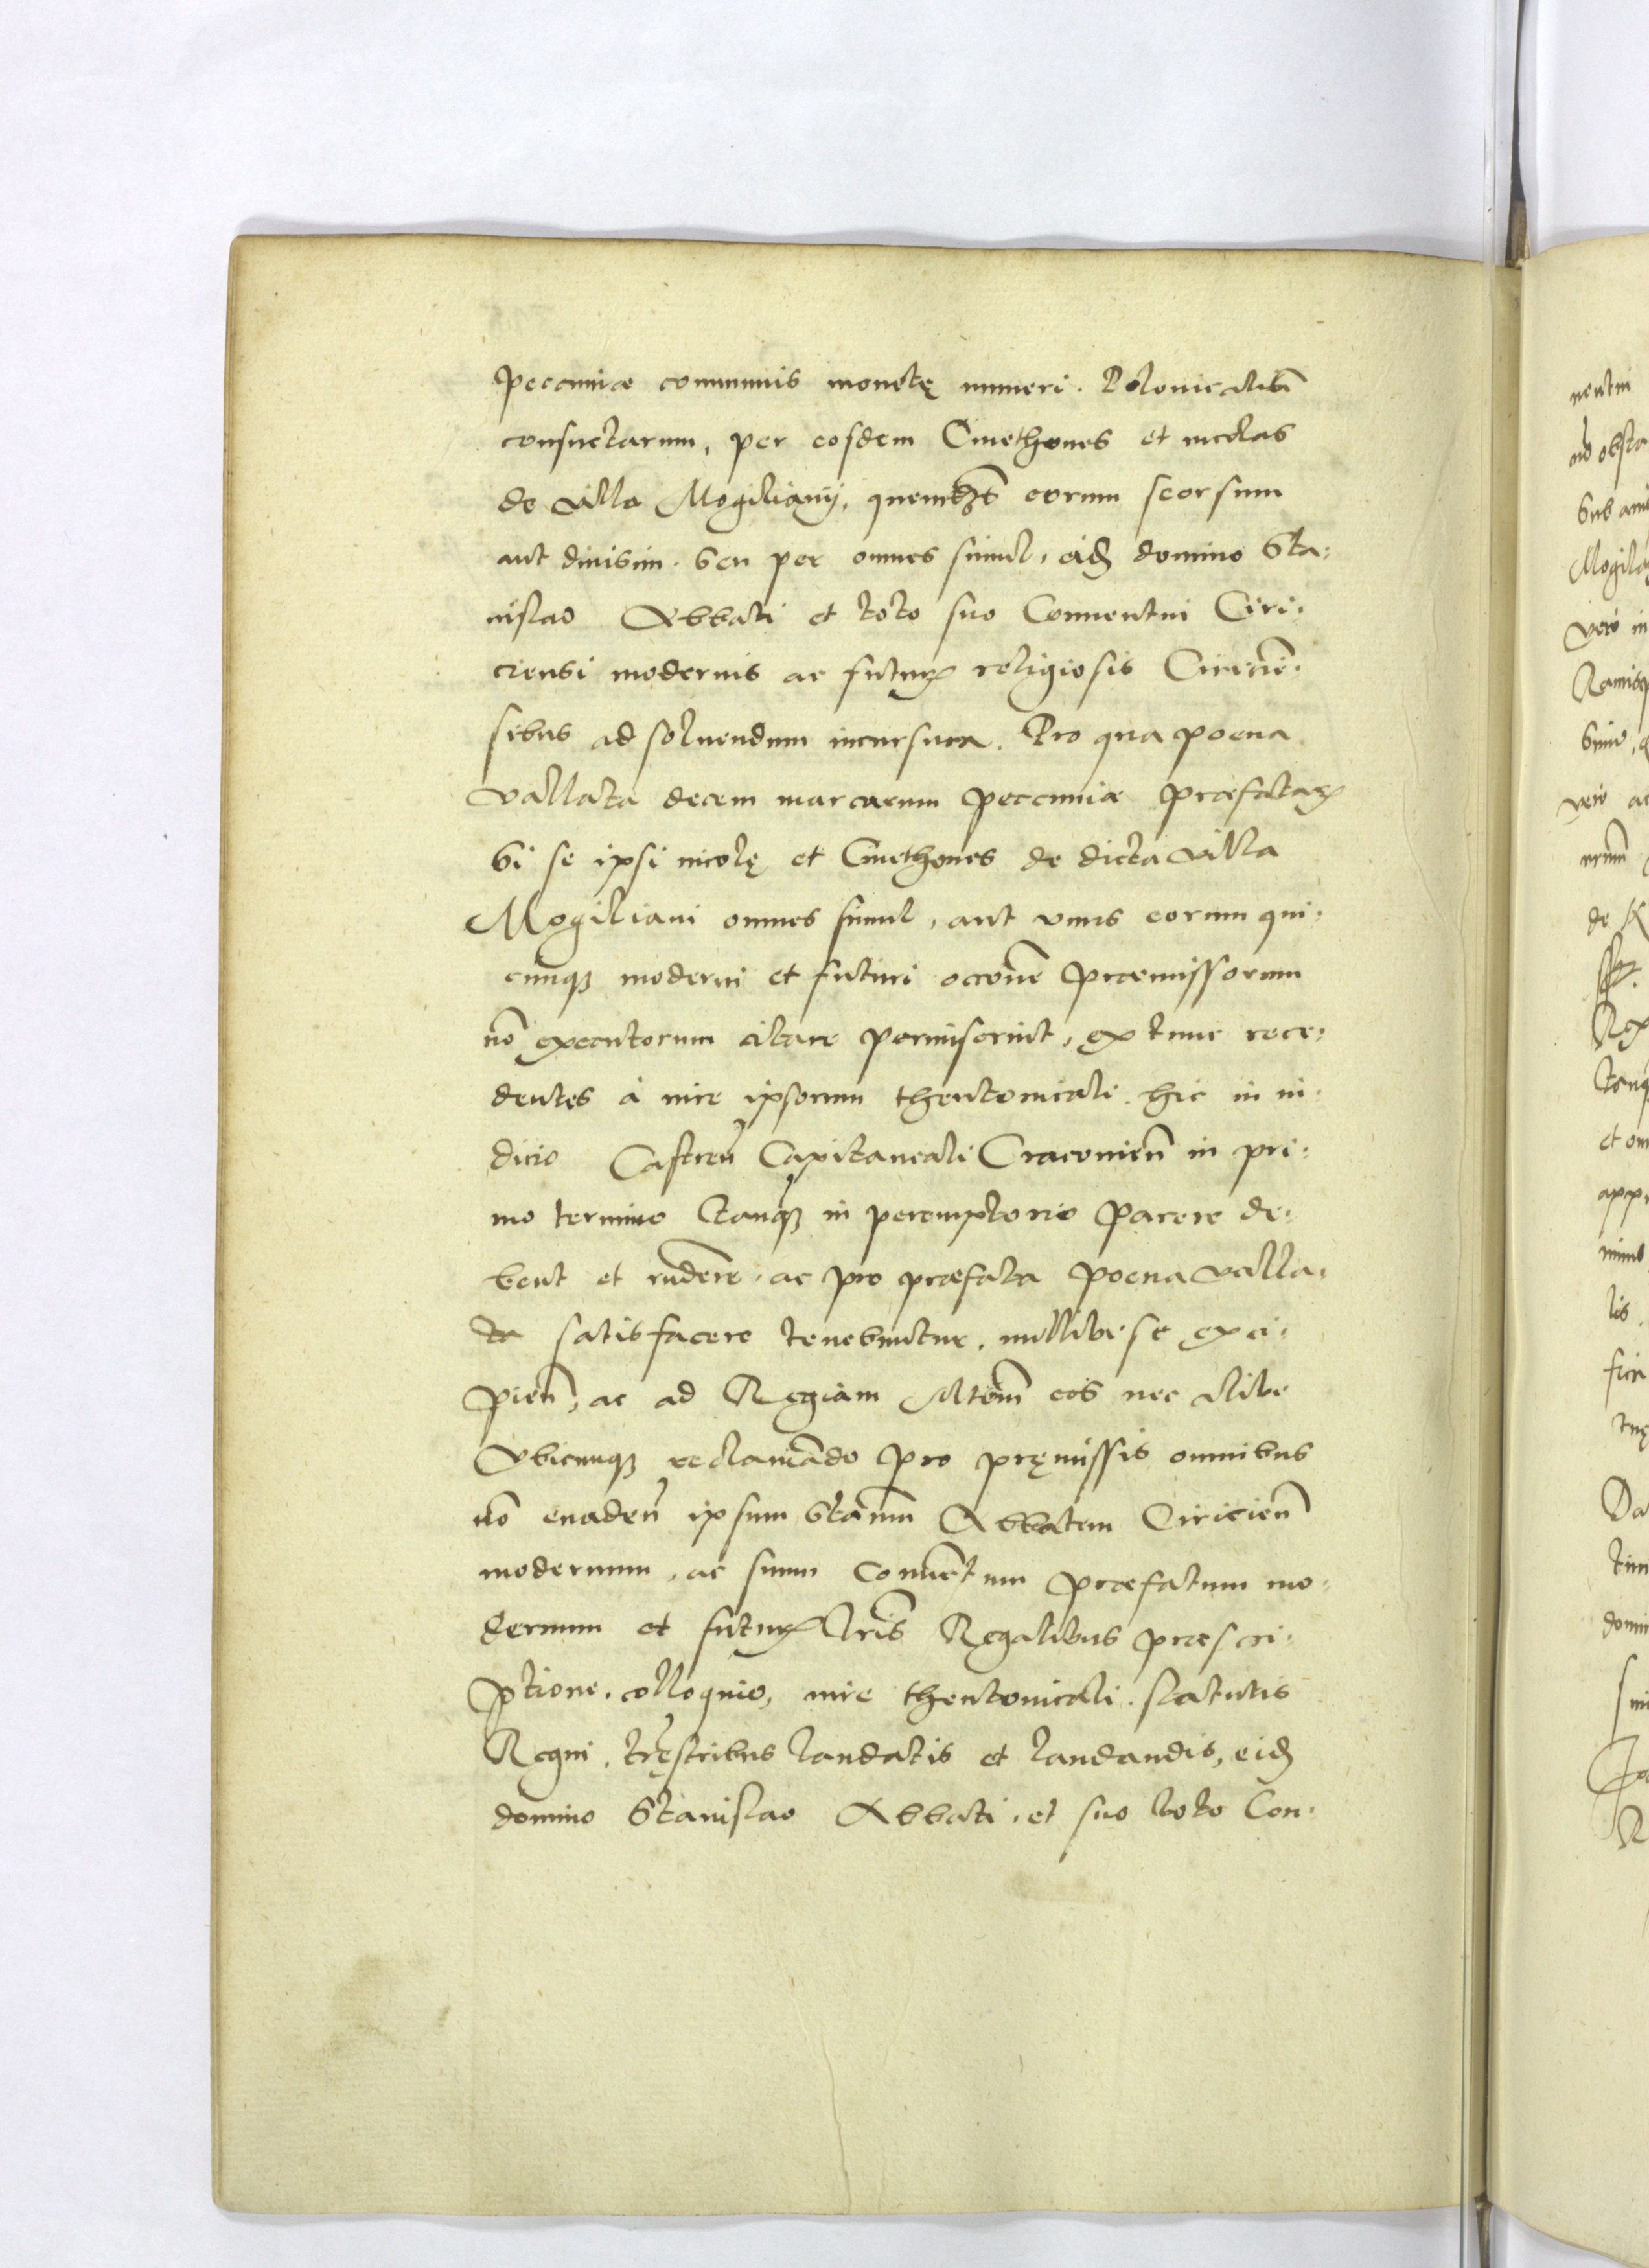 pecuniae communis monetę numeri. Polonicalibꝰ
consuetarum, per eosdem Cmethones et incolas
de villa Mogiliany, quemlibet eorum seorsum
aut diuisim. seu per omnes simul, eidē domino Sta:
nislao Abbati et toto suo Conuentui Ciri:
ciensi modernis ac futurꝭ religiosis Ciricień:
sibus ad soluendum incursura. Pro qua poena
vallata decem marcarum pecuniae praefatarꝫ
si se ipsi incolę et Cmethones de dicta villa
Mogiliani omnes simul, aut vnus eorum qui:
cunqꝫ moderni et futuri occōne praemissorum
nō executorum citare permiserint, ex tunc rece:
dentes à iure ipsorum theutonicali hic in iu:
dicio Castreń Capitaneali Cracouień in pri:
mo termino tanqꝫ in peremptorio parere de:
bent et rñdere, ac pro praefata poena valla:
ta satisfacere tenebuntur, nullibi se exci:
pień, ac ad Regiam Mtēm eos nec alibi
Vbicunqꝫ reclamādo pro pręmissis omnibus
nō euadeń ipsum Stanīm Abbatem Ciricień
modernum, ac suum Conuētum praefatum mo:
dernum et futurꝫ Lrīs Regalibus praescri:
ptione, colloquio, iure theutonicali. statutis
Regni, trꝛęstribus laudatis et laudandis, eidē
domino Stanislao Abbati, et suo toto Con:
nentui
nō obsta
Sub ami
Mogila
Vero in
vero ac
de K
Rex
tanq
et om
appr
lis.
Da
domi